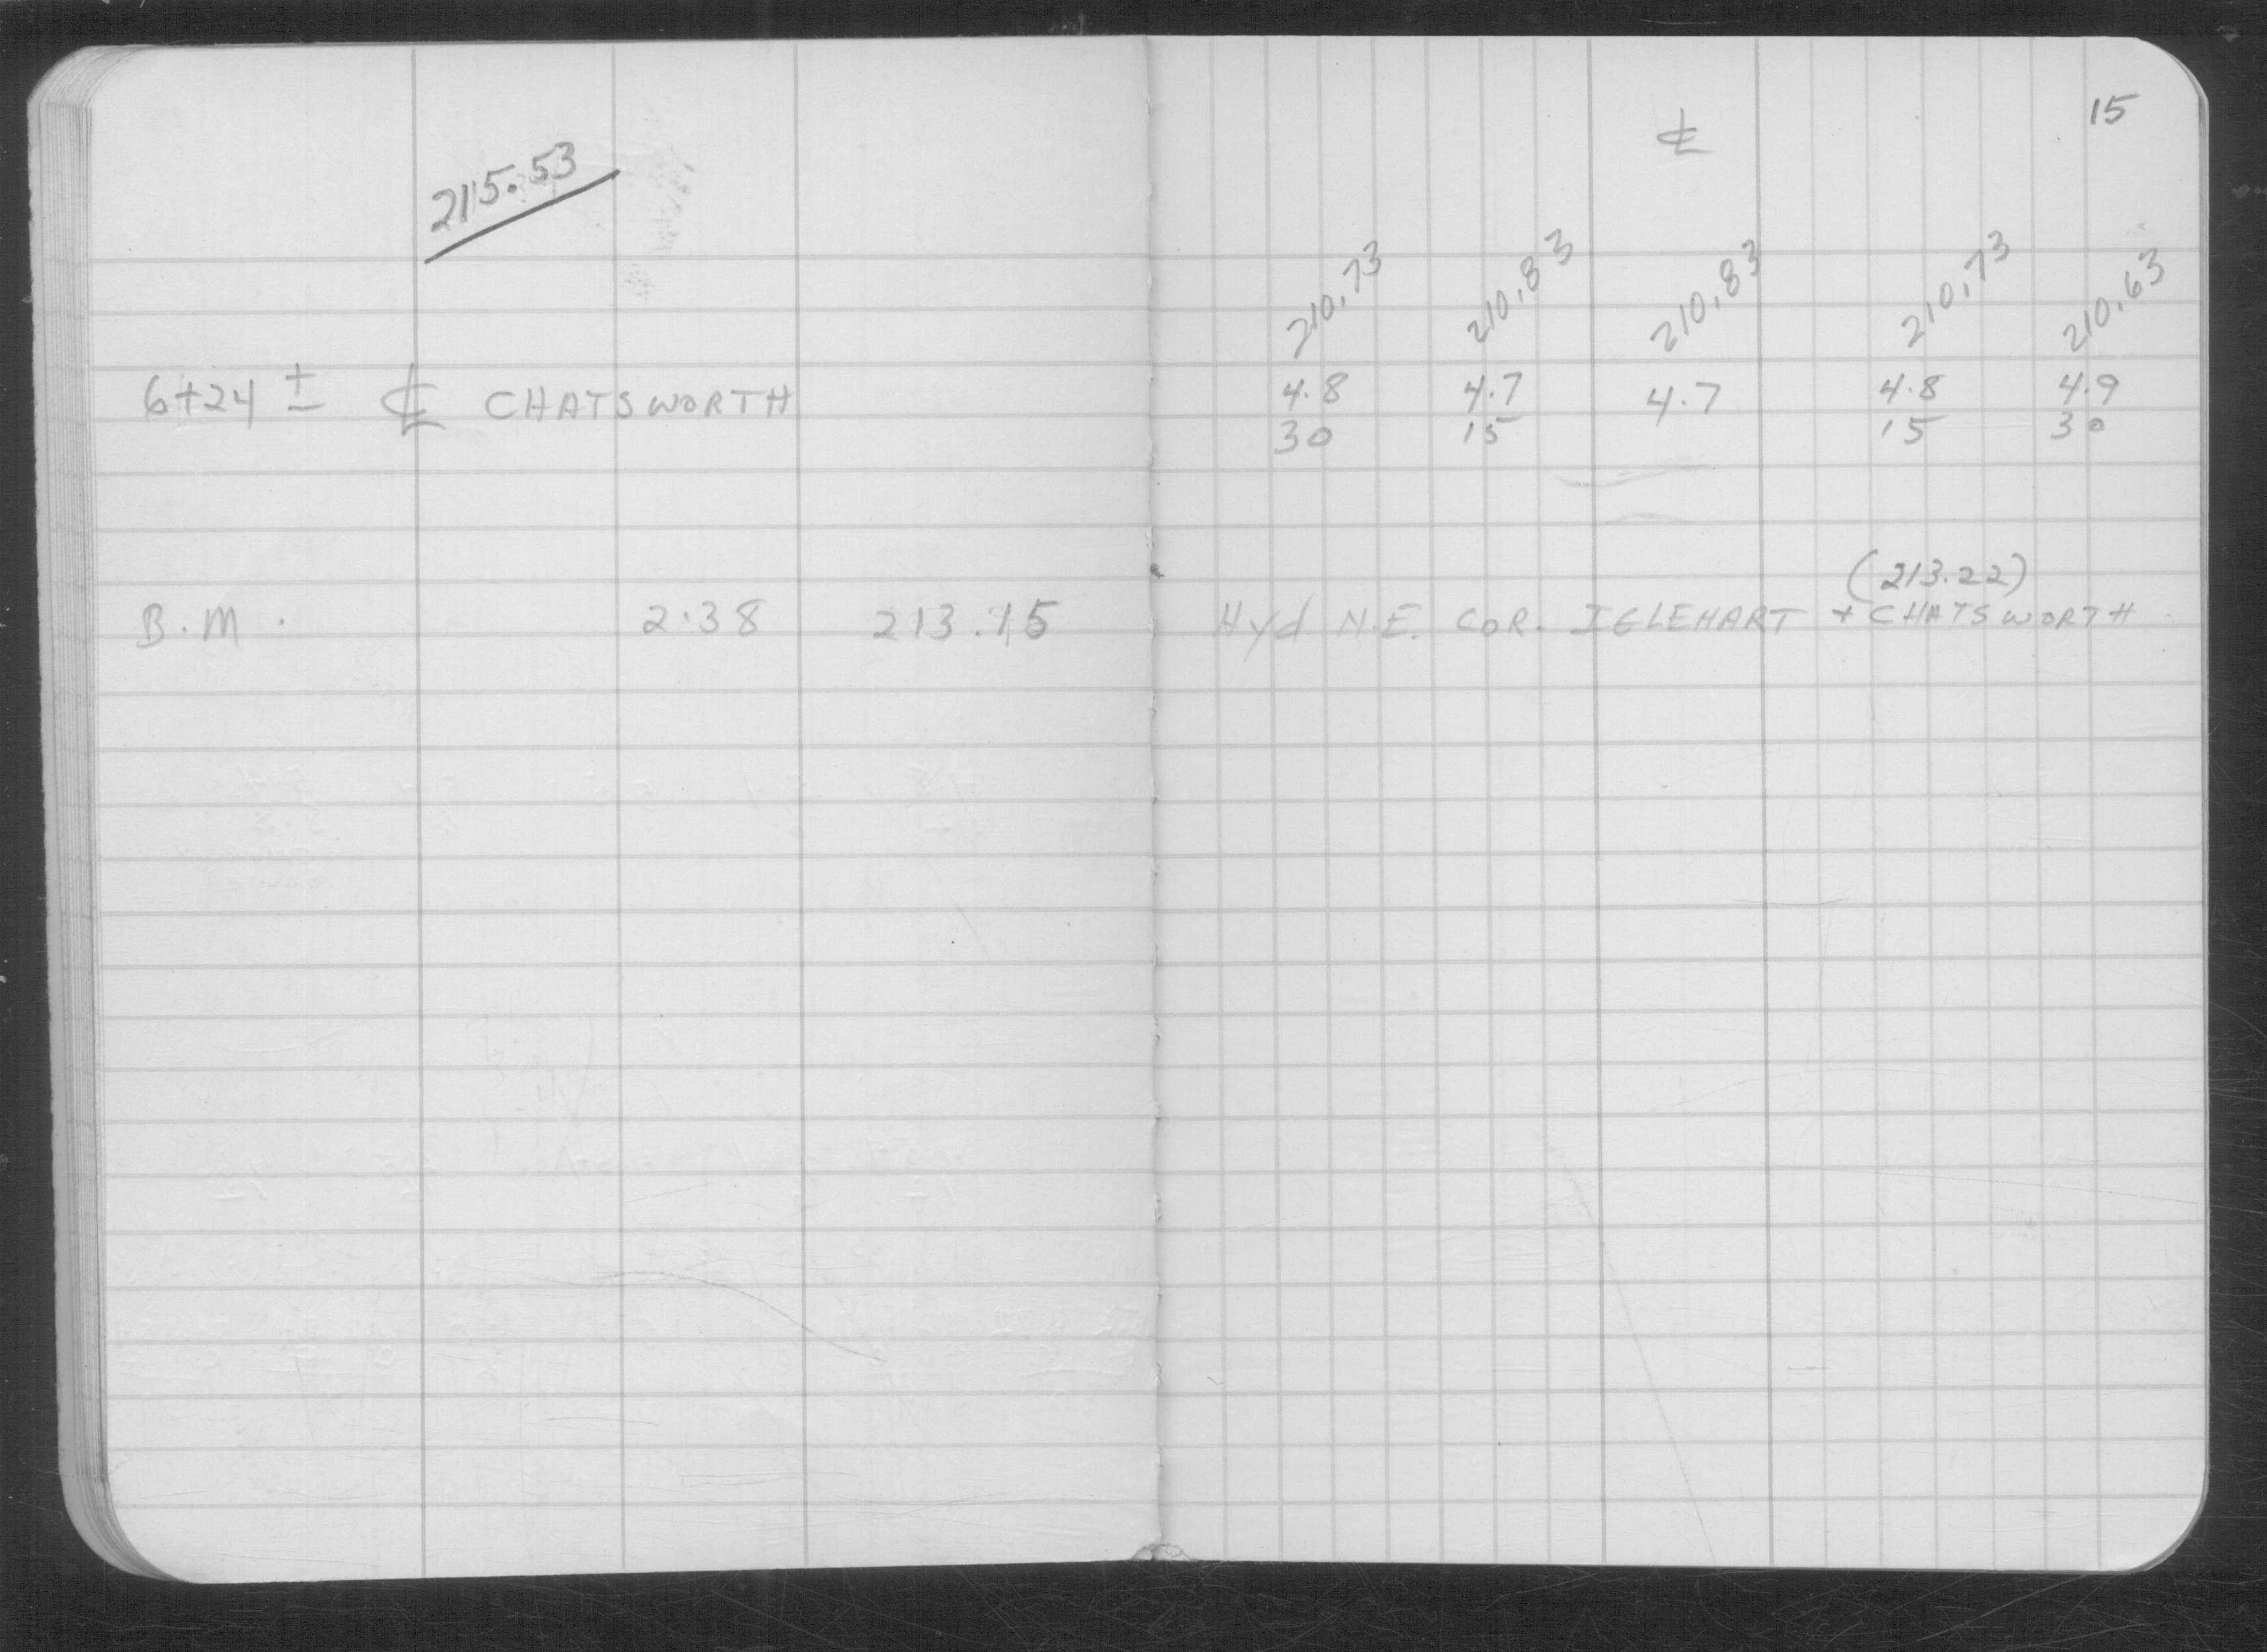 215.53
6+24 ± ℄ CHATSWORTH
B.M. 2.38 213.15
15
℄
210.73 210.83 210.83 210.73 210.63
4.8 4.7 4.7 4.8 4.9
30 15 15 30
(213.22)
Hyd N.E. COR. IGLEHART + CHATSWORTH